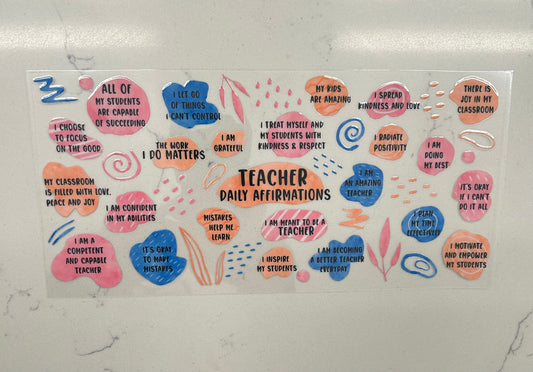 ALL OF
MY STUDENTS
ARE CAPABLE
OF SUCCEEDING
I LET GO
OF THINGS
I CAN'T CONTROL
MY KIDS
ARE AMAZING
I SPREAD
KINDNESS AND LOVE
THERE IS
JOY IN MY
CLASSROOM
I CHOOSE
TO FOCUS
ON THE GOOD
THE WORK
I DO MATTERS
I AM
GRATEFUL
I TREAT MYSELF AND
MY STUDENTS WITH
KINDNESS & RESPECT
I RADIATE
POSITIVITY
I AM
DOING
MY BEST
MY CLASSROOM
IS FILLED WITH LOVE,
PEACE AND JOY
TEACHER
DAILY AFFIRMATIONS
I AM
AN AMAZING
TEACHER
IT'S OKAY
IF I CAN'T
DO IT ALL
I AM CONFIDENT
IN MY ABILITIES
MISTAKES
HELP ME
LEARN
I AM MEANT TO BE A
TEACHER
I PLAN
MY TIME
EFFECTIVELY
I AM A
COMPETENT
AND CAPABLE
TEACHER
IT'S OKAY
TO MAKE
MISTAKES
I INSPIRE
MY STUDENTS
I AM BECOMING
A BETTER TEACHER
EVERYDAY
I MOTIVATE
AND EMPOWER
MY STUDENTS